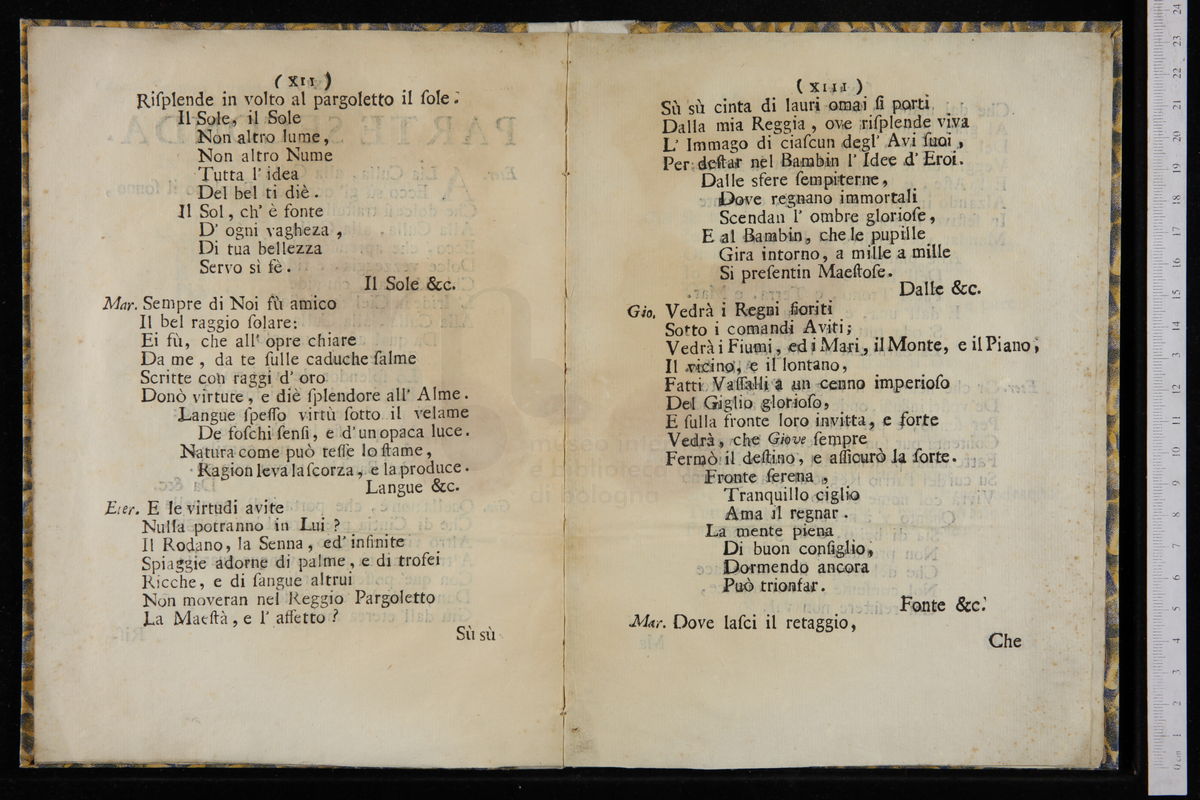 ( XII )
Riſplende in volto al pargoletto il ſole.
Il Sole, il Sole
Non altro lume,
Non altro Nume
Tutta l' idea
Del bel ti diè.
Il Sol, ch' è fonte
D' ogni vagheza,
Di tua bellezza
Servo sì fè.
Il Sole &c.
Mar. Sempre di Noi fù amico
Il bel raggio ſolare:
Ei fù, che all' opre chiare
Da me, da te ſulle caduche ſalme
Scritte con raggi d' oro
Donò virtute, e diè ſplendore all' Alme.
Langue ſpeſſo virtù ſotto il velame
De foſchi ſenſi, e d' un opaca luce.
Natura come può teſſe lo ſtame,
Ragion leva la ſcorza, e la produce.
Langue &c.
Eter. E le virtudi avite
Nulla potranno in Lui?
Il Rodano, la Senna, ed' infinite
Spiaggie adorne di palme, e di trofei
Ricche, e di ſangue altrui
Non moveran nel Reggio Pargoletto
La Maeſtà, e l' affetto?
Sù sù
( XIII )
Sù sù cinta di lauri omai ſi porti
Dalla mia Reggia, ove riſplende viva
L' Immago di ciaſcun degl' Avi ſuoi,
Per deſtar nel Bambin l' Idee d' Eroi.
Dalle sfere ſempiterne,
Dove regnano immortali
Scendan l' ombre glorioſe,
E al Bambin, che le pupille
Gira intorno, a mille a mille
Si preſentin Maeſtoſe.
Dalle &c.
Gio. Vedrà i Regni fioriti
Sotto i comandi Aviti;
Vedrà i Fiumi, ed i Mari, il Monte, e il Piano;
Il vicino, e il lontano,
Fatti Vaſſalli a un cenno imperioſo
Del Giglio glorioſo,
E ſulla fronte loro invitta, e forte
Vedrà, che Giove ſempre
Fermò il deſtino, e aſſicurò la ſorte.
Fronte ſerena,
Tranquillo ciglio
Ama il regnar.
La mente piena
Di buon conſiglio,
Dormendo ancora
Può trionfar.
Fonte &c.
Mar. Dove laſci il retaggio,
Che